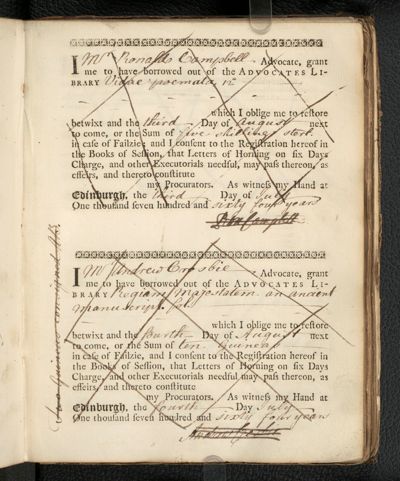 I Mr Ronald Campbell - Advocate, grant
me to have borrowed out of the ADVOCATES LI-
BRARY Vidae poemata 12°
which I oblige me to restore
betwixt and the third Day of August next
to come, or the Sum of five shillings sterl.
in case of Failzie; and I consent to the Registration hereof in
the Books of Session, that Letters of Horning on six Days
Charge, and other Executorials needful, may pass thereon, as
effeirs, and thereto constitute
my Procurators. As witness my Hand at
Edinburgh, the third Day of July
One thousand seven hundred and sixty four years
Campbell
I Mr Andrew Crosbie - Advocate, grant
me to have borrowed out of the ADVOCATES LI-
BRARY Regiam Majestatem an ancient
manuscript fol.
which I oblige me to restore
betwixt and the fourth Day of August next
to come, or the Sum of ten guineas
in case of Failzie, and I consent to the Registration hereof in
the Books of Session, that Letters of Horning on six Days
Charge, and other Executorials needful, may pass thereon, as
effeirs, and thereto constitute
my Procurators. As witness my Hand at
Edinburgh, the fourth Day July
One thousand seven hundred and sixty four years
Andrew Crosbie
two guineas consigned